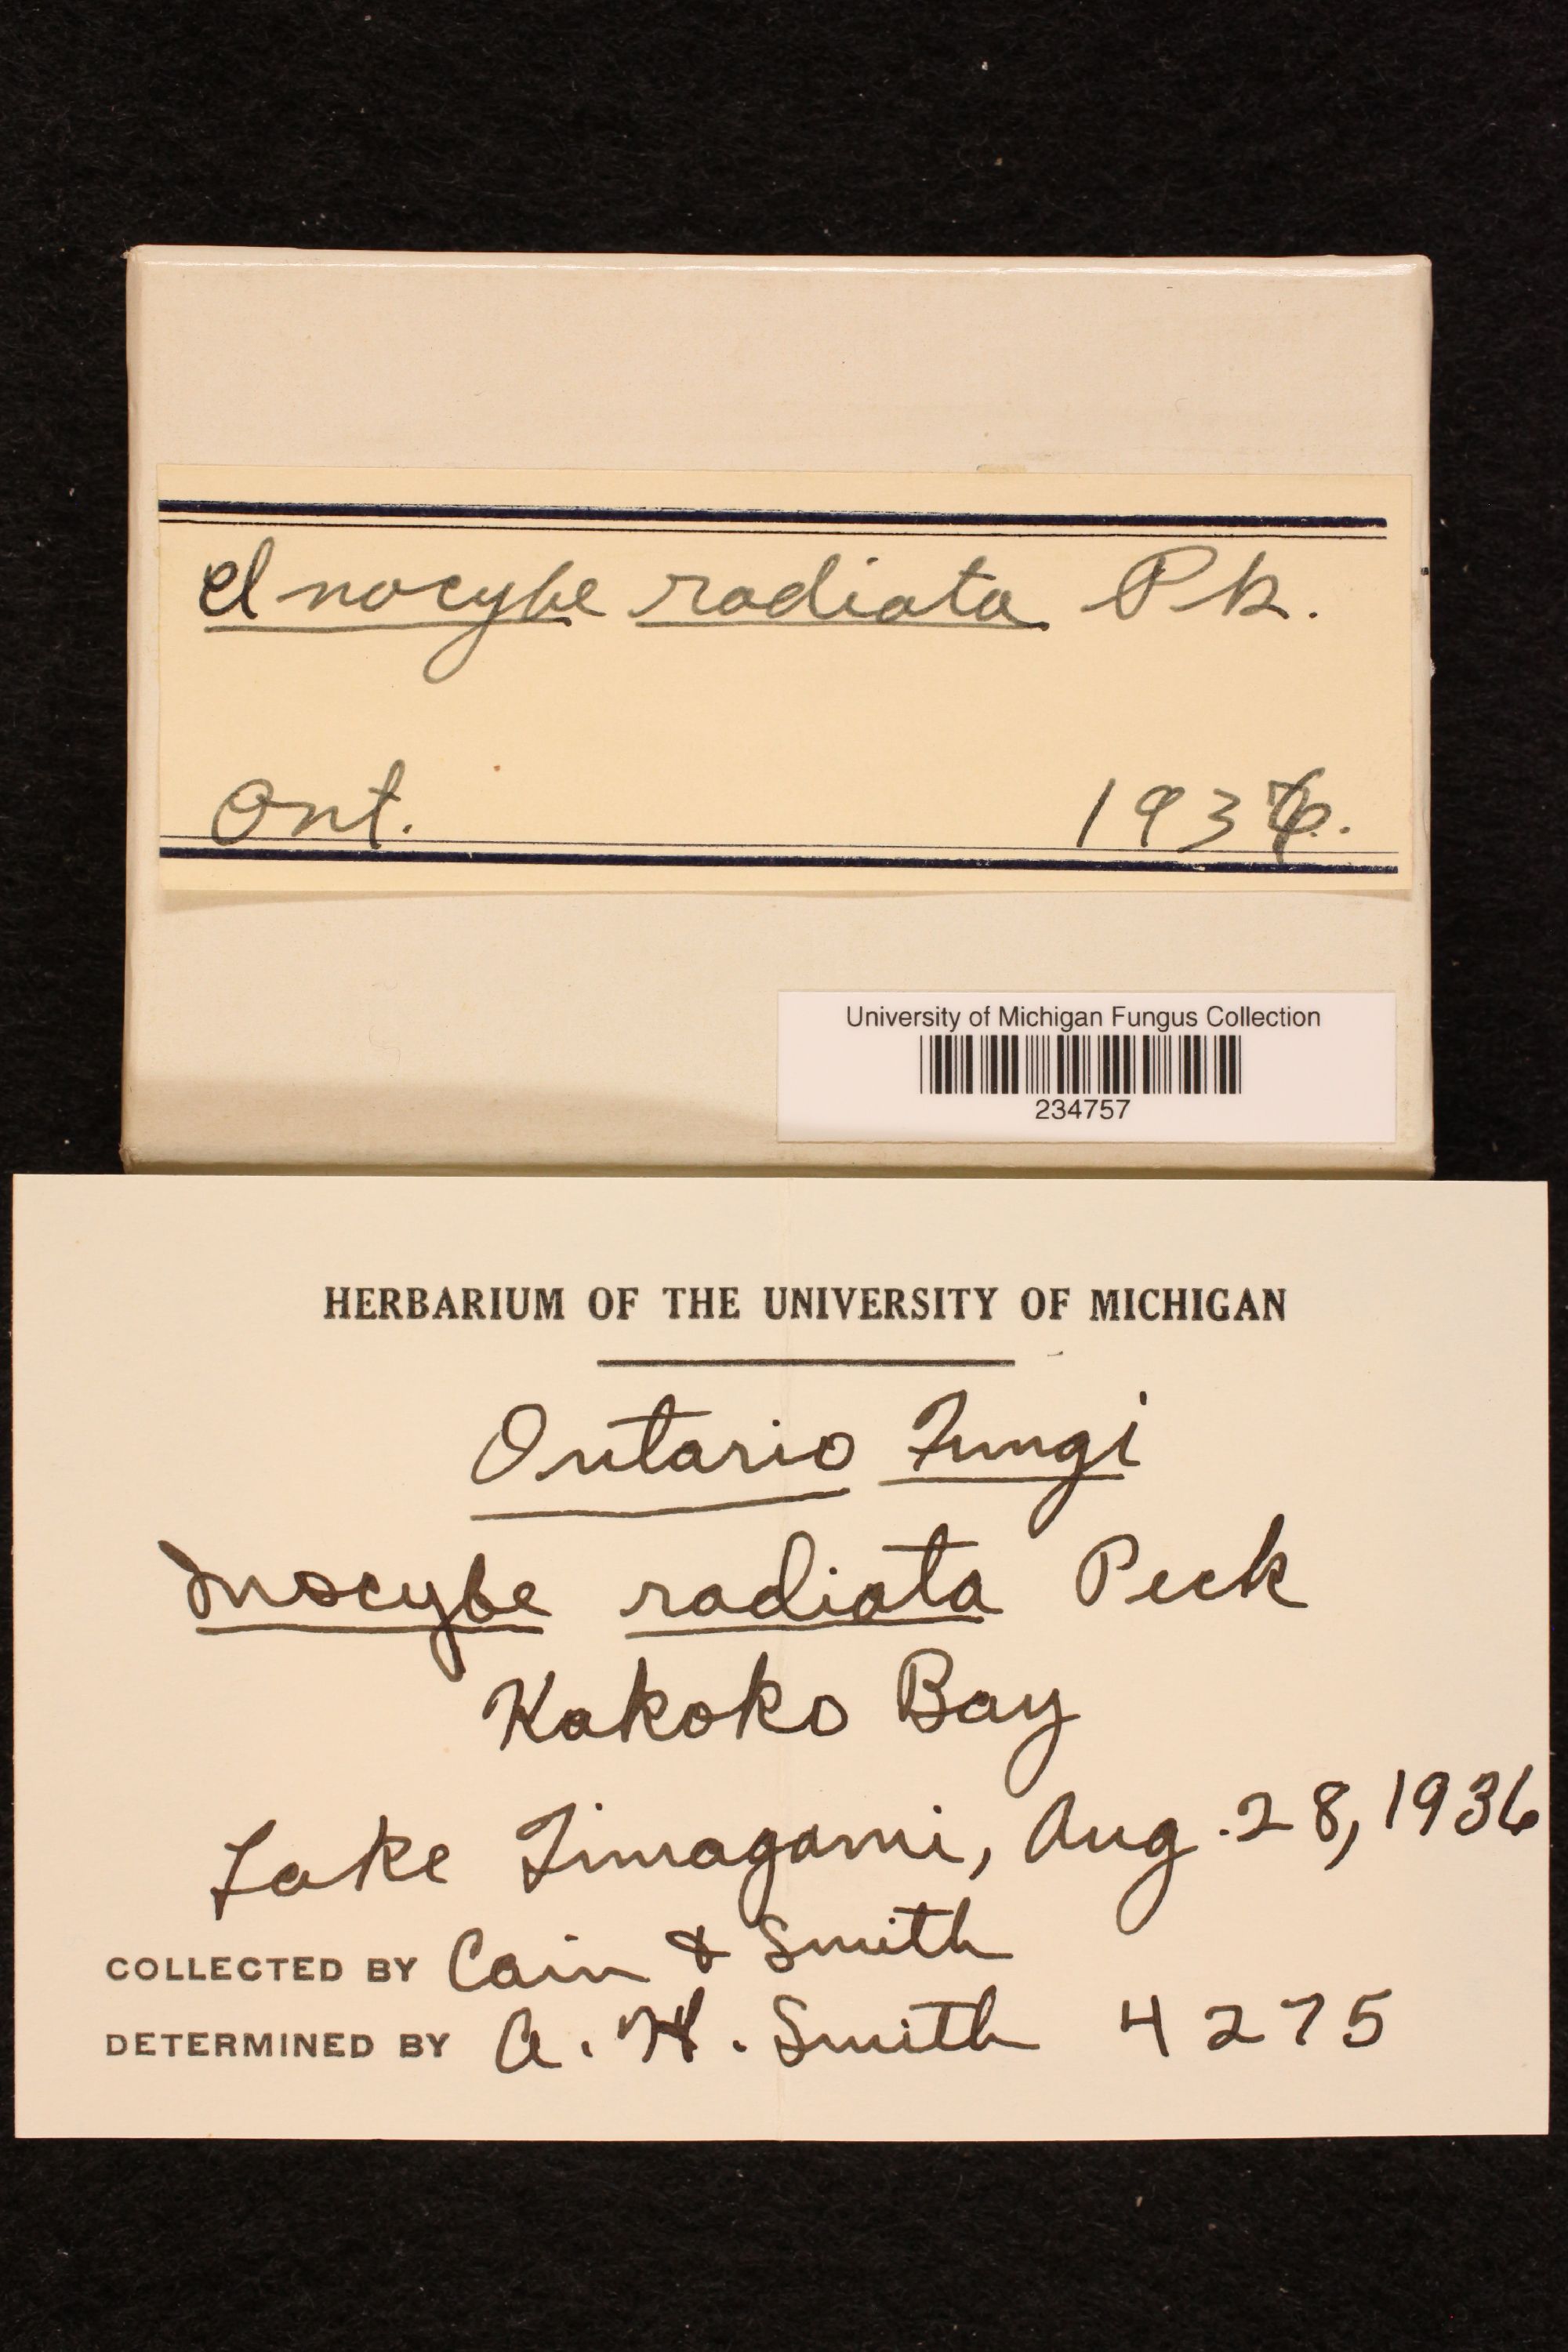 Inocybe radiata Pk.
Ont. 1936.
University of Michigan Fungus Collection
234757
HERBARIUM OF THE UNIVERSITY OF MICHIGAN
Ontario Fungi
Inocybe radiata Peck
Kokoko Bay
Lake Timagami, Aug. 28, 1936
COLLECTED BY Cain & Smith
DETERMINED BY A. H. Smith 4275